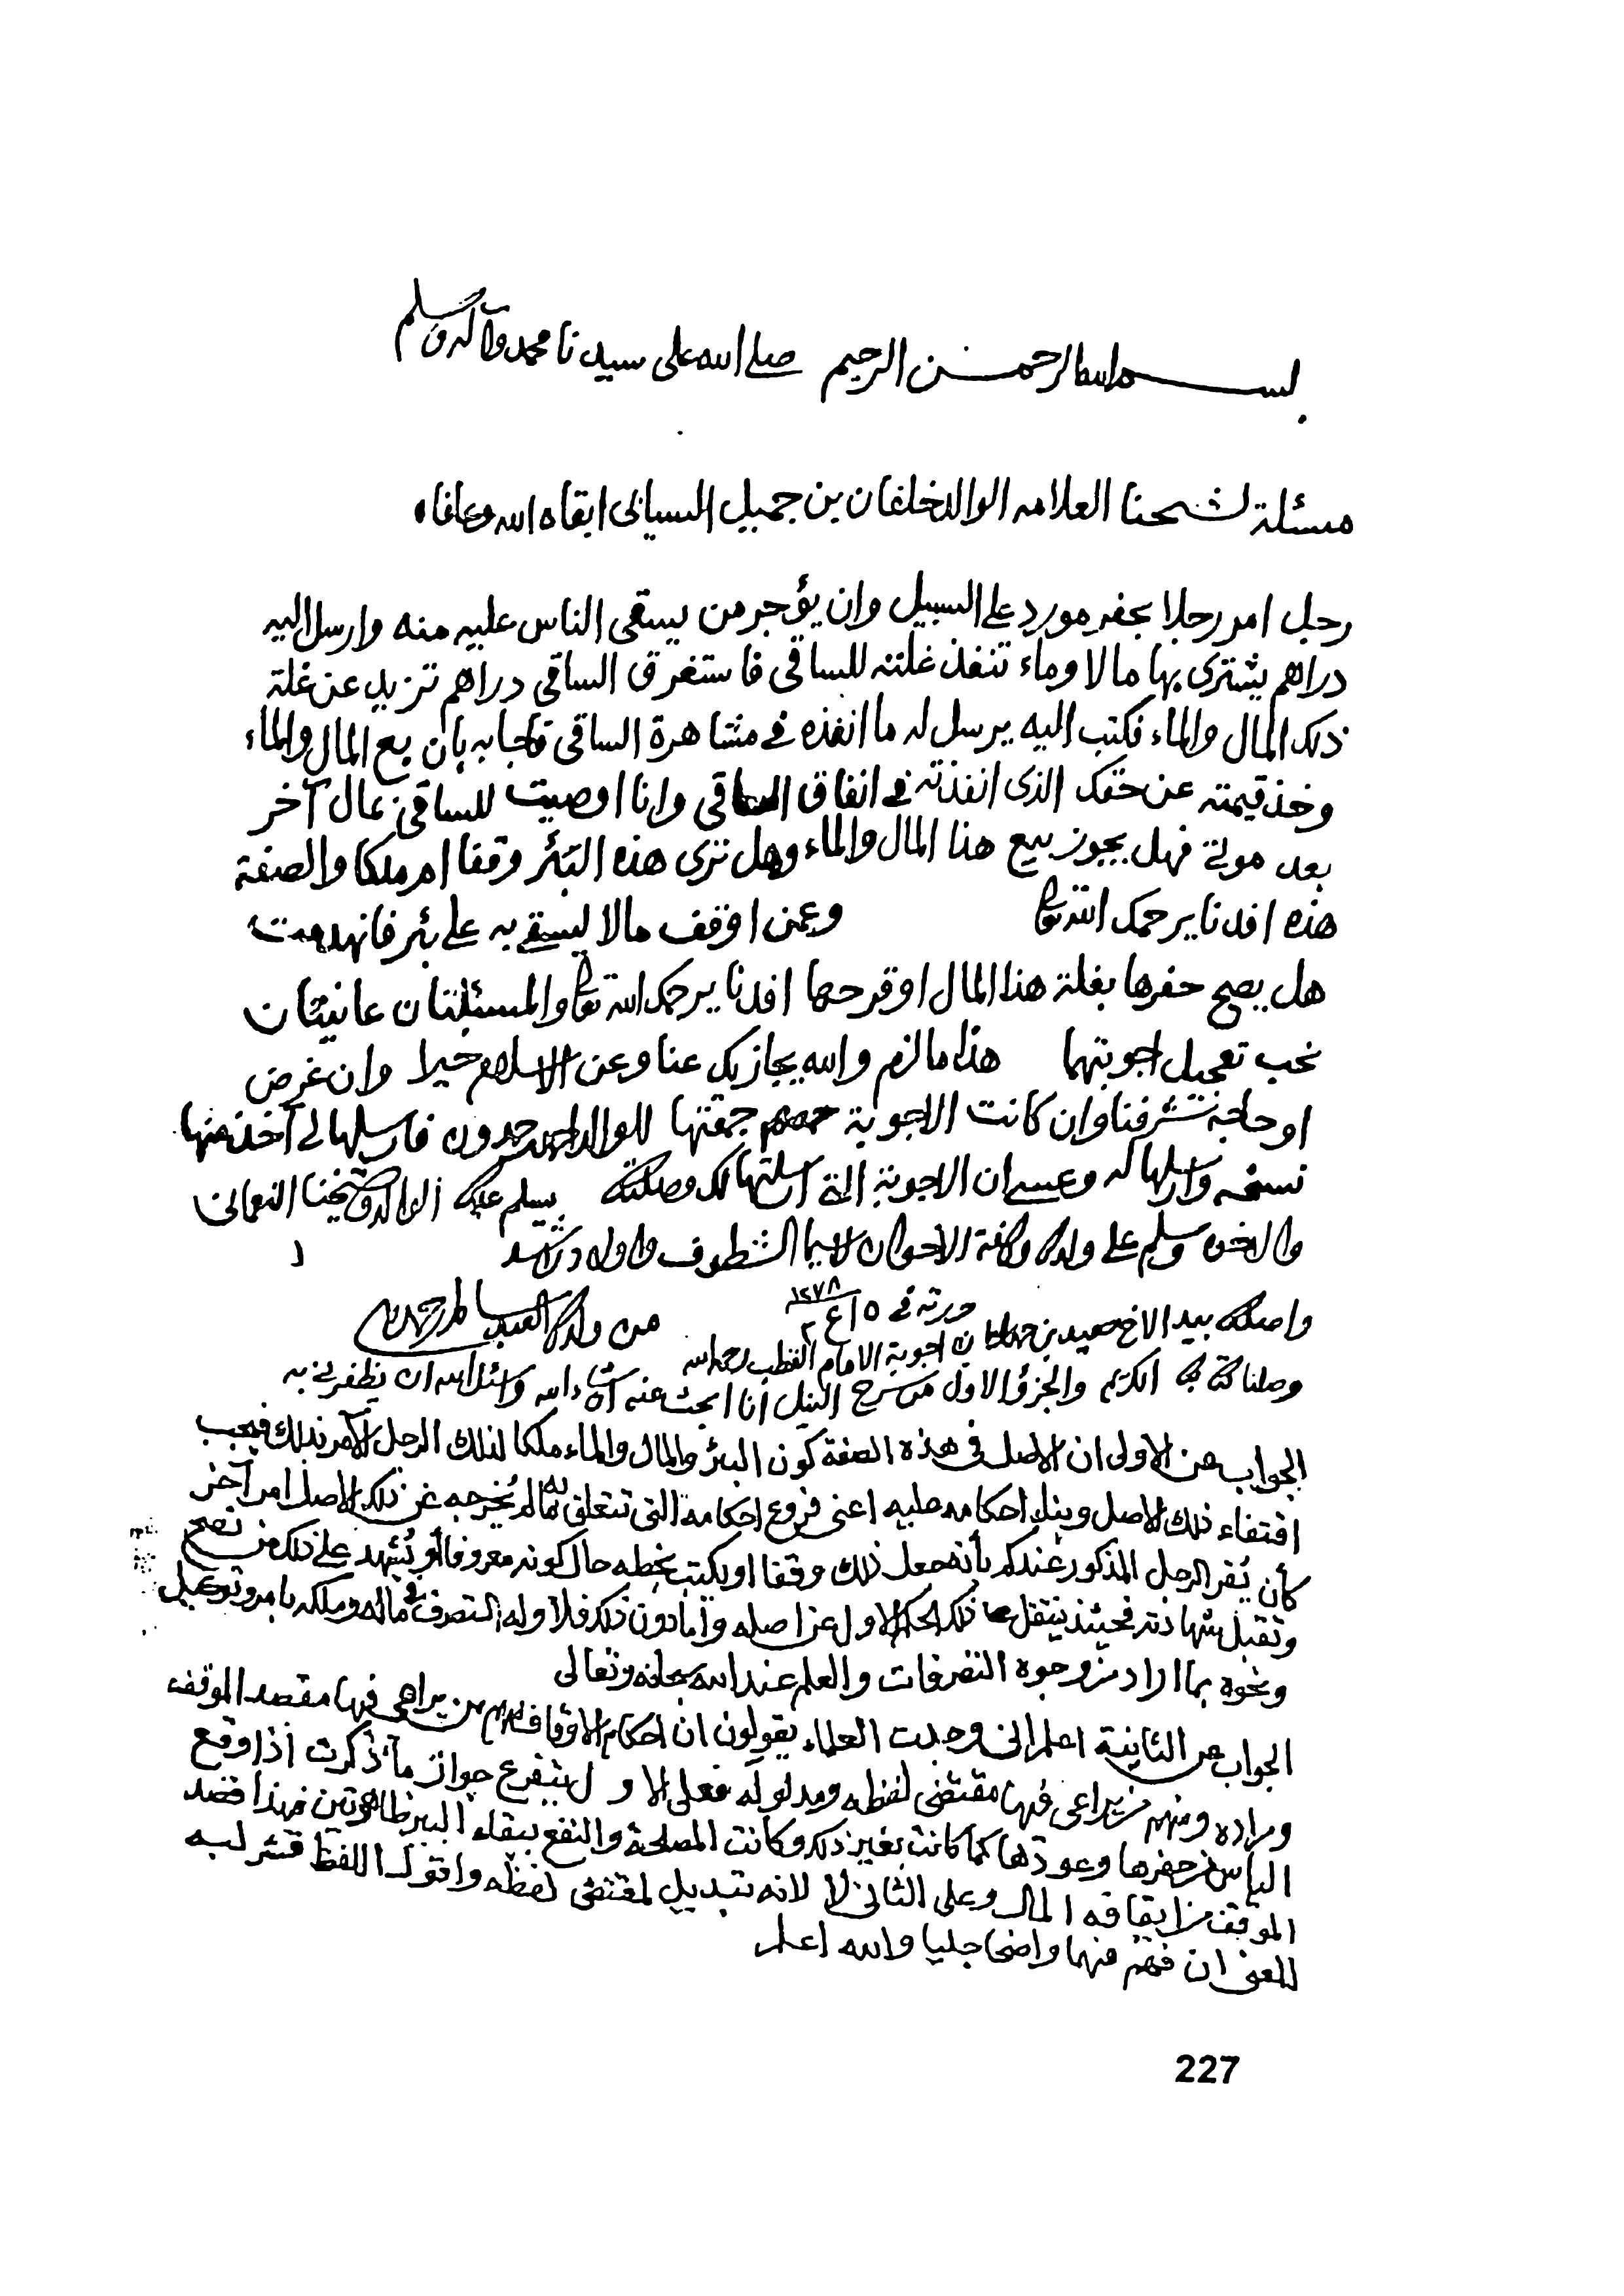 بسم الله الرحمن الرحيم صلى الله على سيدنا محمد وآله وسلم
مسئلة لشيخنا العلامه الوالد خلفان بن جميل السيابي ابقاه الله وعافاه
رجل امر رجلا بحفر مورد على السبيل وان يؤجر من يسقى الناس عليه منه وارسل اليه
دراهم يشترى بها مالا وماء تنفذ غلته للساقى فاستغرق الساقى دراهم تزيد عن غلة
ذلك المال والماء فكتب اليه يرسل له ما انفذه في مشاهرة الساقى فاجابه بان بع المال والماء
وخذ قيمته عن حقك الذى انفذته في انفاق الساقى وانا اوصيت للساقى بمال آخر
بعد موتي فهل يجوز بيع هذا المال والماء وهل ترى هذه البئر وقفا ام ملكا والصفة
هذه افدنا يرحمك الله تعالى وعمن اوقف مالا ليسقي به على بئر فانهدمت
هل يصح حفرها بغلة هذا المال او قرحها افدنا يرحمك الله تعالى والمسئلتان عانيتان
نحب تعجيل اجوبتهما هذا ما لزم والله يجازيك عنا وعن الاسلام خيرا وان غرض
او حاجة تشرفنا وان كانت الاجوبة جمعتها للوالد حمدون فارسلها لي آخذ منها
نسخه وارسلها له وعسى ان الاجوبة التي ارسلتها لك وصلتك يسلم عليك الوالد وشيخنا النعمانى
والاخوة وسلم على ولدك وكافة الاخوان لاسيما الشطوف واولاد راشد
من ولدك العبد سالم بن حمد
واصلك بيد الاخ سعيد بن حررته في ١٥ ع ٢ ١٣٧٨
وصلنا كتابك الكريم والجزؤ الاول من شرح النيل انا ابحث عنه ان شاء الله واسئل الله ان يظفرني به
اجوبة الامام القطب رحمه الله
الجواب عن الاولى ان الاصل في هذه الصفة كون البئر والمال والماء ملكا لذلك الرجل الآمر بذلك فيجب
اقتفاء ذلك الاصل وبناء احكامه عليه اعنى فروع احكامه التى تتعلق به ما لم يُخرجه عن ذلك الاصل امر آخر
كأن يُقر الرجل المذكور عندكم بأنه جعل ذلك وقفا او يكتب بخطه حال كونه معروفا أو يُشهد على ذلك من تصح
وتقبل شهادته فحينئذ ينتقل ذلك الحكم الاول عن اصله وأما دون ذلك فلا وله التصرف في ماله وملكه بامر وتوكيل
ونحوه بما اراد من وجوه التصرفات والعلم عند الله سبحانه وتعالى
الجواب عن الثانية اعلم انى وجدت العلماء يقولون ان احكام الاوقاف منهم من يراعى فيها مقصد الموقف
ومراده ومنهم من يراعى فيها مقتضى لفظه ومدلوله فعلى الاول يتفرع جواز ما ذكرت اذا وقع
الياس من حفرها وعودتها كما كانت بغير ذلك وكانت المصلحة والنفع ببقاء البير ظاهرتين فهذا قصد
الموقف من ايقافه المال وعلى الثانى لا لانه تبديل لمقتضى لفظه واقول اللفظ قشر لبه
المعنى ان فهم منهما واضحا جليا والله اعلم
227